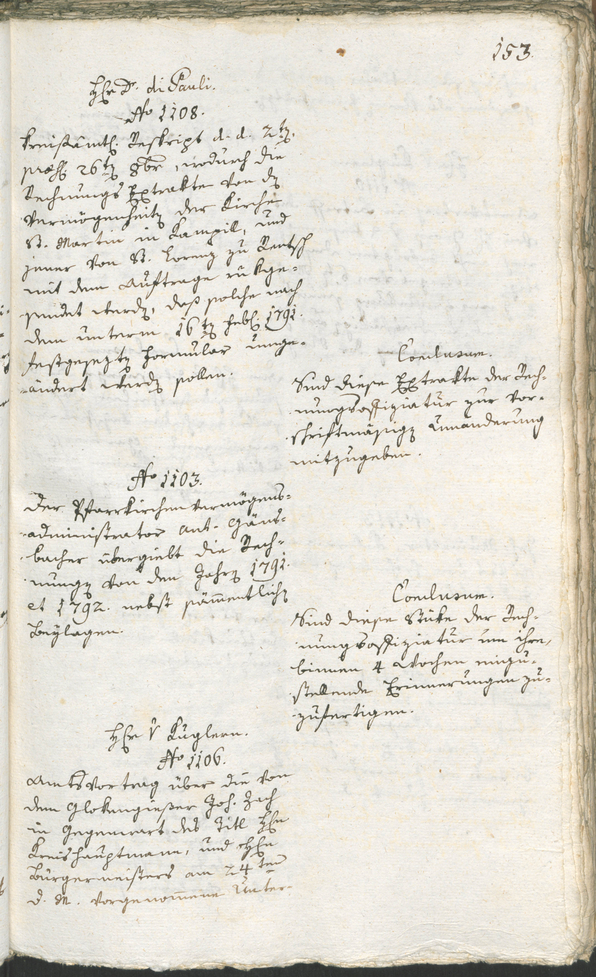 153.
Hr. Dr. di Pauli.
No 1108.
Kreisamtl. Reskript d. d. 24
præs. 26ten 8br, wodurch die
Rechnungs Extrakten von den
Vermögenheiten der Kirche
St. Martin in Kampill, und
jener von St. Lorenz zu Rentsch
mit dem Auftrage rükge-
sendet werden, daß solche nach
dem unterm 16ten Febr. 1791.
festgesezten Formular umge-
ändert werden sollen.
Conclusum.
Sind diese Extrakte der Rech-
nungsoffiziatur zur vor-
schriftmäsigen Umänderung
mitzugeben.
No 1103.
Der Pfarrkirchen Vermögens-
administrator Ant. Gäns-
bacher übergiebt die Rech-
nungen von den Jahren 1791.
et 1792. nebst sämentlichen
Beylagen.
Conclusum.
Sind diese Stüke der Rech-
nungsoffiziatur um ihre,
binnen 4 Wochen einzu-
stellende Erinnerungen zu-
zufertigen.
Hr. v Kuglern.
No 1106.
Amtsvortrag über die von
dem Glokengießer Joh. Zach
in Gegenwart des Titl Hrn
Kreishauptmann, und Hrn
Bürgermeisters am 24ten
d. M. vorgenommene Unter-